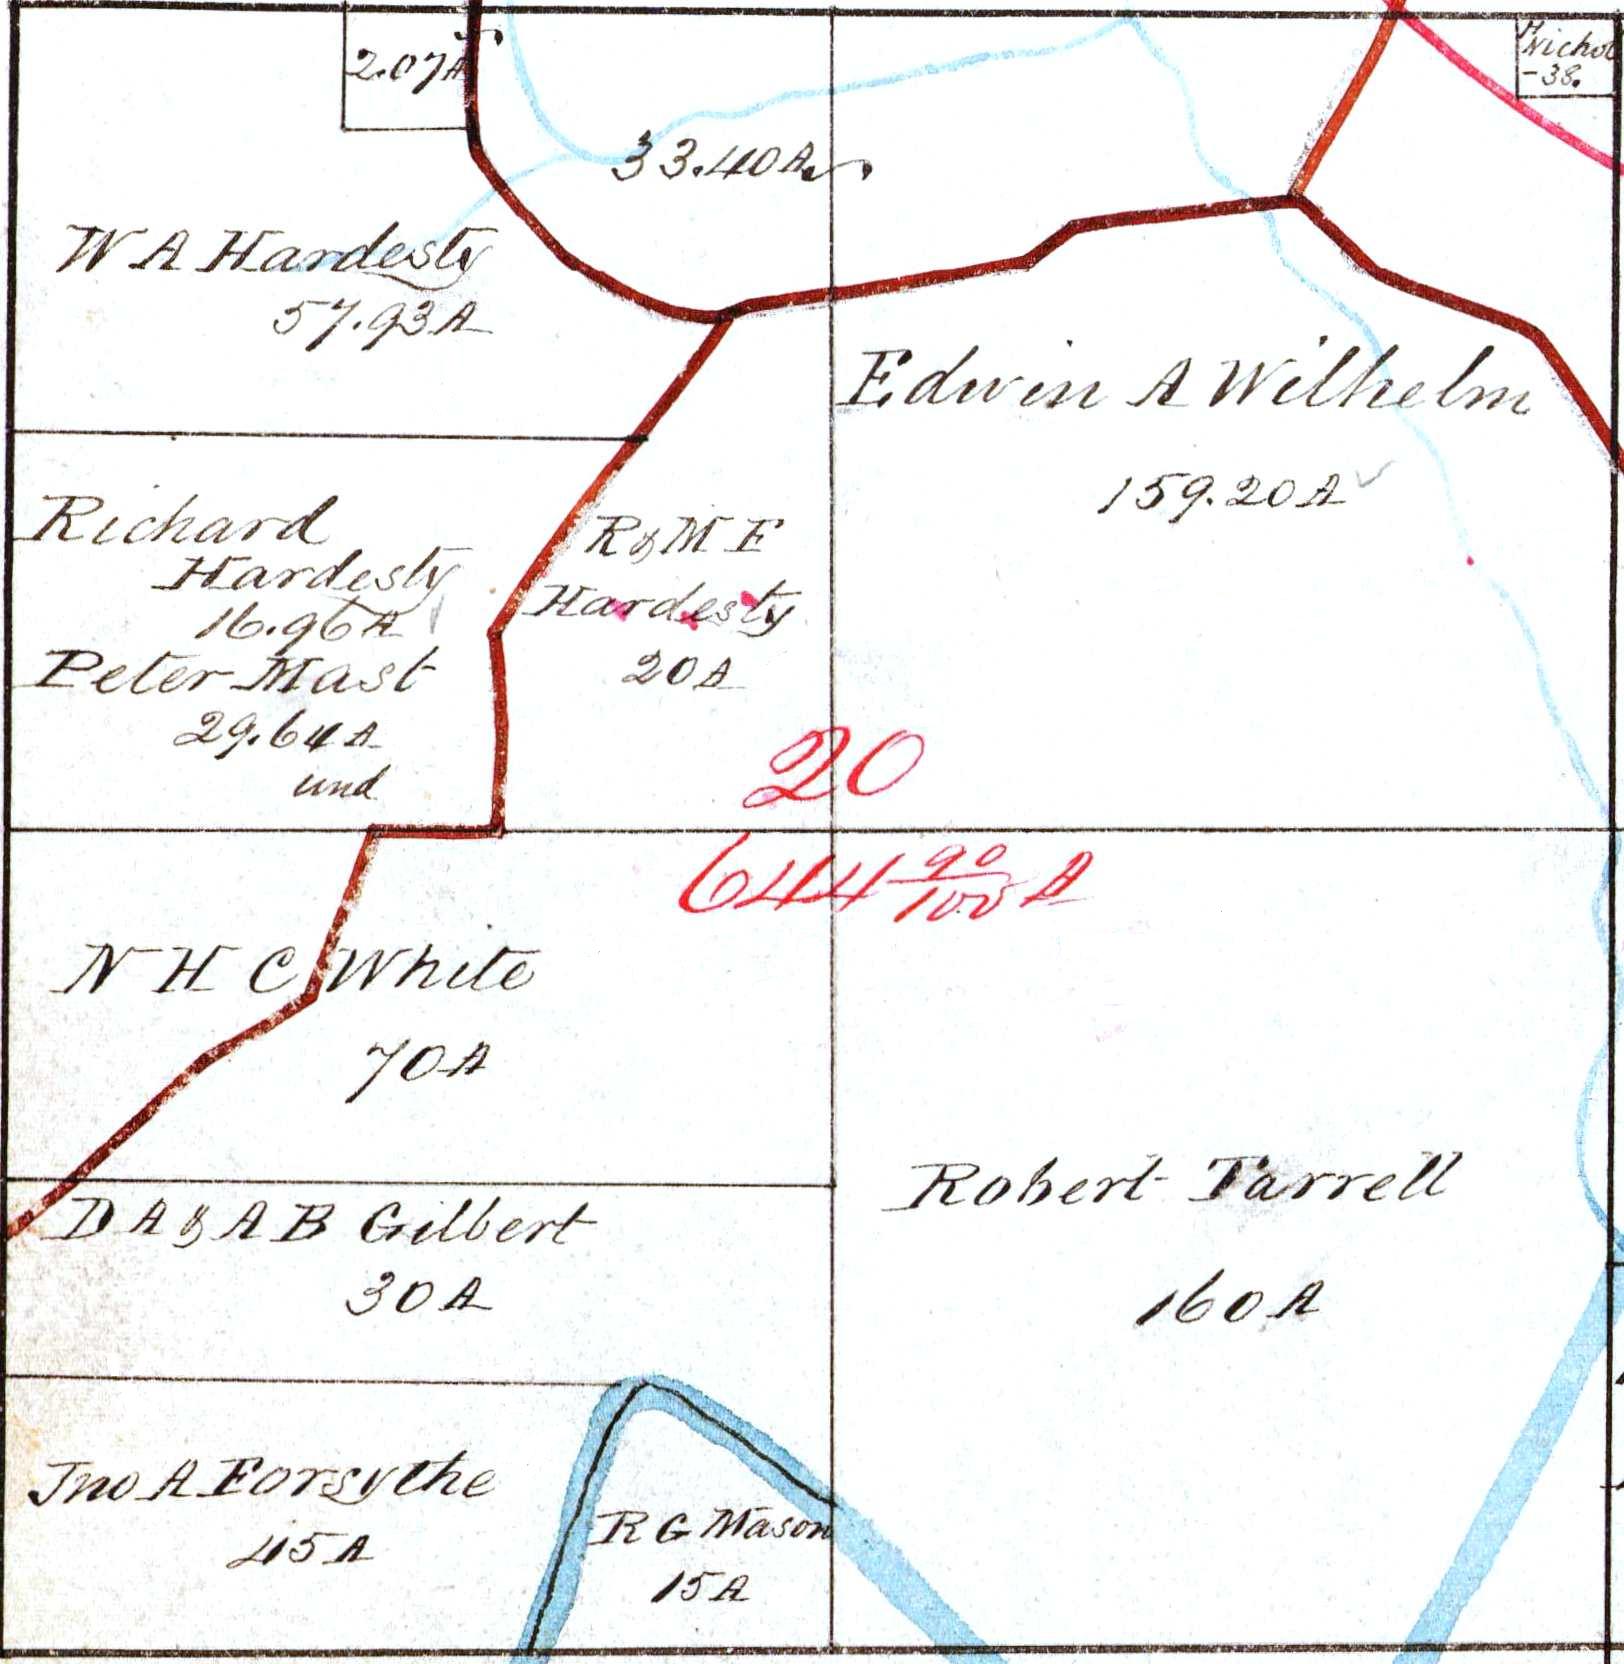 2.07A
H
Nichol
-38.
33.40A
W A Hardesty
57.93A
Edwin A Wilhelm
159.20A
Richard
Hardesty
16.96A
Peter Mast
29.64A
und
R & M E
Hardesty
20A
20
644 90/100 A
N H C White
70A
D A & A B Gilbert
30A
Robert Tarrell
160A
Jno A Forsythe
45A
R G Mason
15A